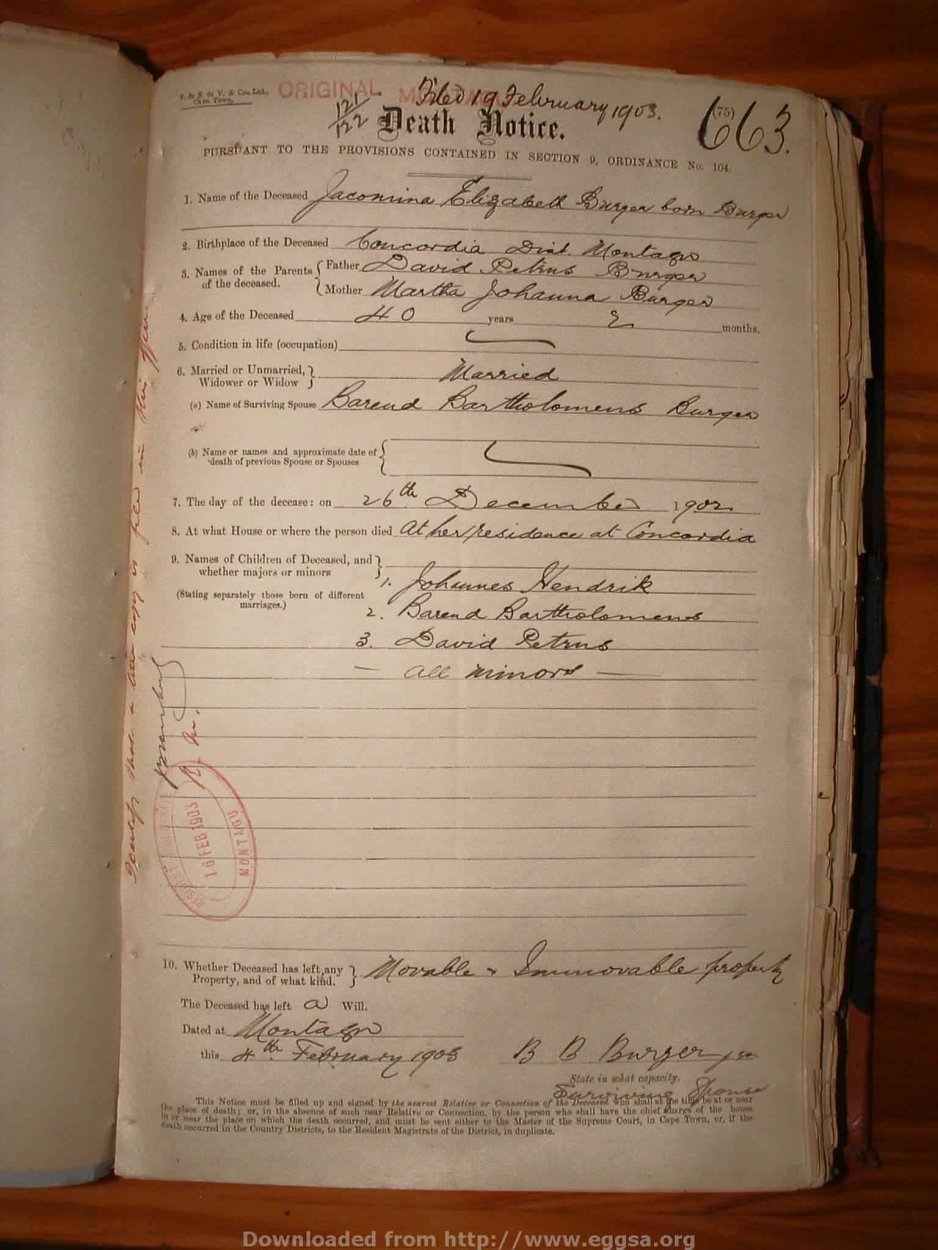 T. & S. de V. & Co., Ltd.,
Cape Town.
ORIGINAL
121/122
Filed 19 February 1903.
(75)
663.
Death Notice.
PURSUANT TO THE PROVISIONS CONTAINED IN SECTION 9, ORDINANCE No. 104.
1. Name of the Deceased Jacomina Elizabeth Burger born Burger
2. Birthplace of the Deceased Concordia Dist. Montagu
3. Names of the Parents of the deceased. { Father David Petrus Burger
Mother Martha Johanna Burger
4. Age of the Deceased 40 years 2 months.
5. Condition in life (occupation)
6. Married or Unmarried, Widower or Widow } Married
(a) Name of Surviving Spouse Barend Bartholomeus Burger
(b) Name or names and approximate date of death of previous Spouse or Spouses {
7. The day of the decease: on 26th December 1902
8. At what House or where the person died At her residence at Concordia
9. Names of Children of Deceased, and whether majors or minors }
(Stating separately those born of different marriages.)
1. Johannes Hendrik
2. Barend Bartholomeus
3. David Petrus
— all minors —
16 FEB 1903
MONTAGU
10. Whether Deceased has left any Property, and of what kind. } Movable & Immovable property
The Deceased has left a Will.
Dated at Montagu
this 4th February 1903 B B Burger
State in what capacity.
Surviving Spouse
This Notice must be filled up and signed by the nearest Relative or Connection of the Deceased who shall at the time be at or near
the place of death; or, in the absence of such near Relative or Connection, by the person who shall have the chief charge of the house
in or near the place on which the death occurred, and must be sent either to the Master of the Supreme Court, in Cape Town, or, if the
death occurred in the Country Districts, to the Resident Magistrate of the District, in duplicate.
Downloaded from http://www.eggsa.org